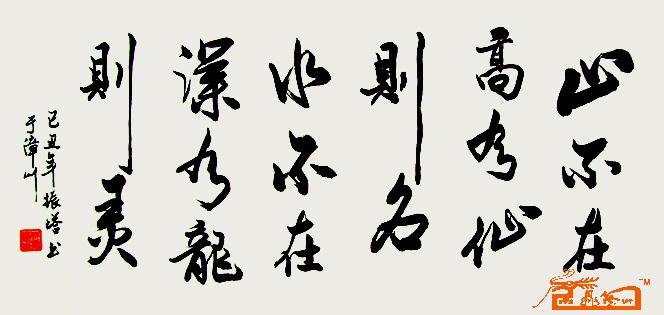 山不在
高有仙
则名
水不在
深有龍
则灵
己丑年振塔书
于漳州